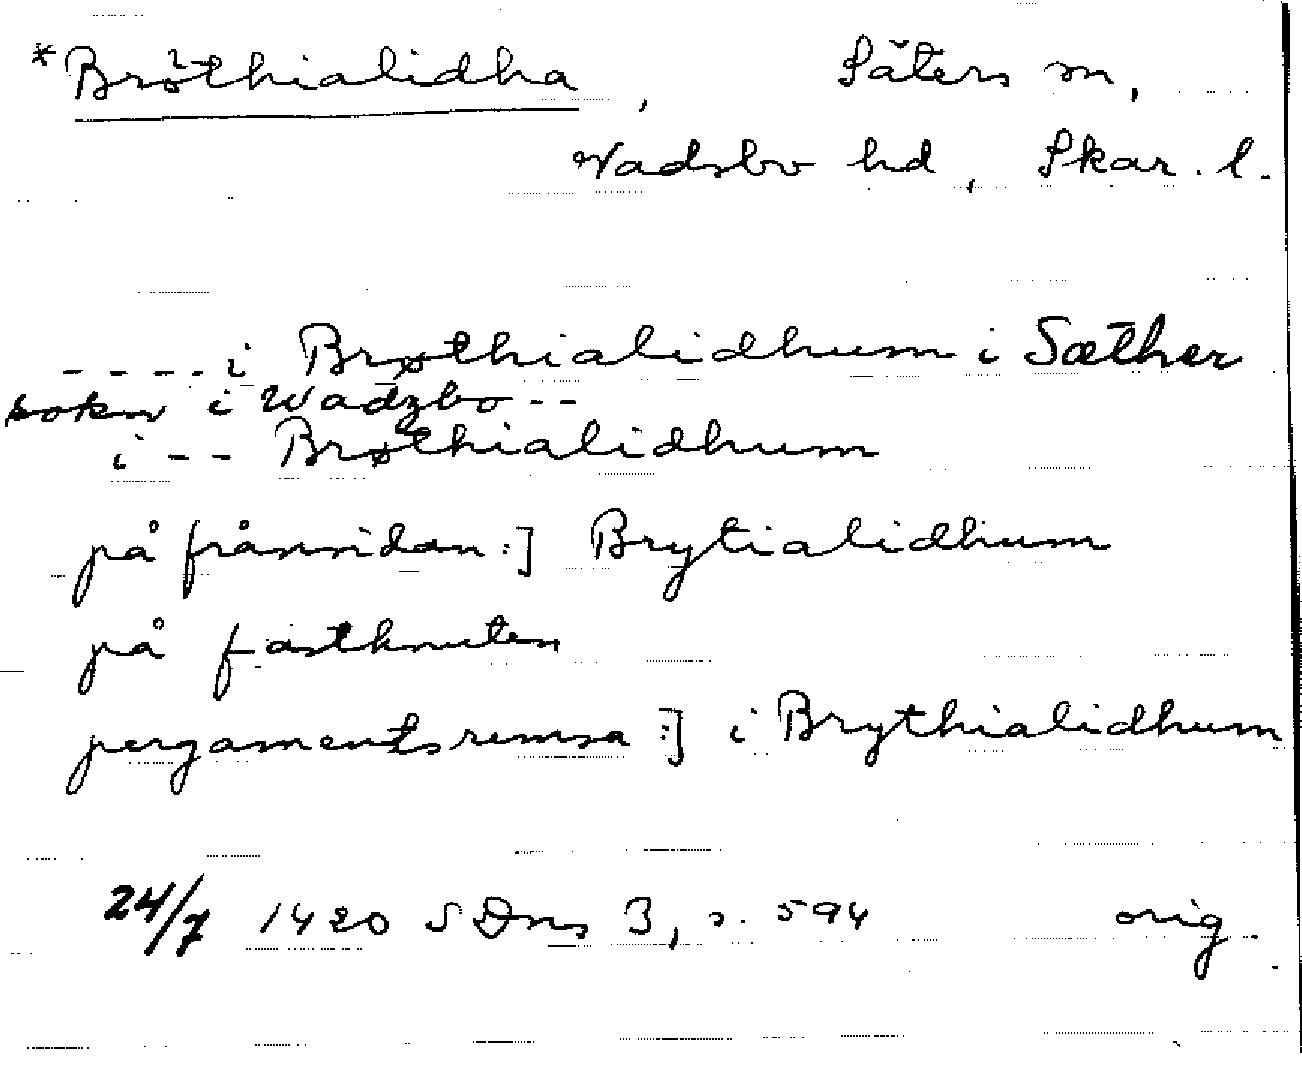 *Bröthialidha, Säters sn,
Vadsbo hd, Skar. l.
- - - - i Brøthialidhum i Sæther
sokn i Wadzbo - -
i - - Brøthialidhum
på frånsidan:] Brytialidhum
på fastknuten
pergamentsremsa:] i Brythialidhum
24/7 1420 SDns 3, s. 594 orig.